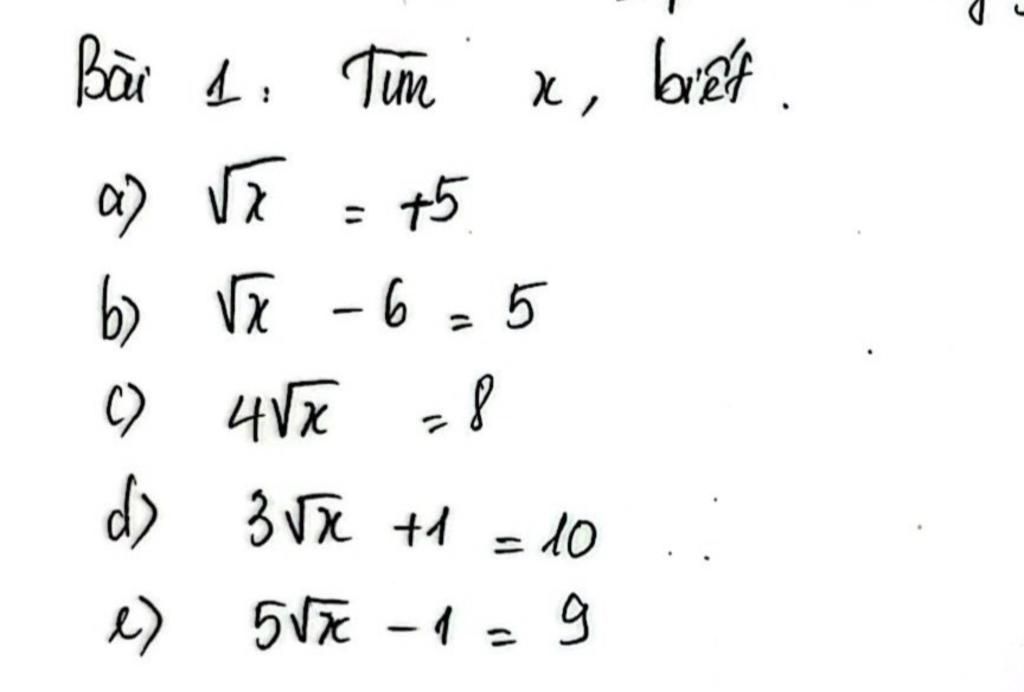 Bài 1: Tìm x, biết.
a) √x = +5
b) √x - 6 = 5
c) 4√x = 8
d) 3√x +1 = 10
e) 5√x - 1 = 9